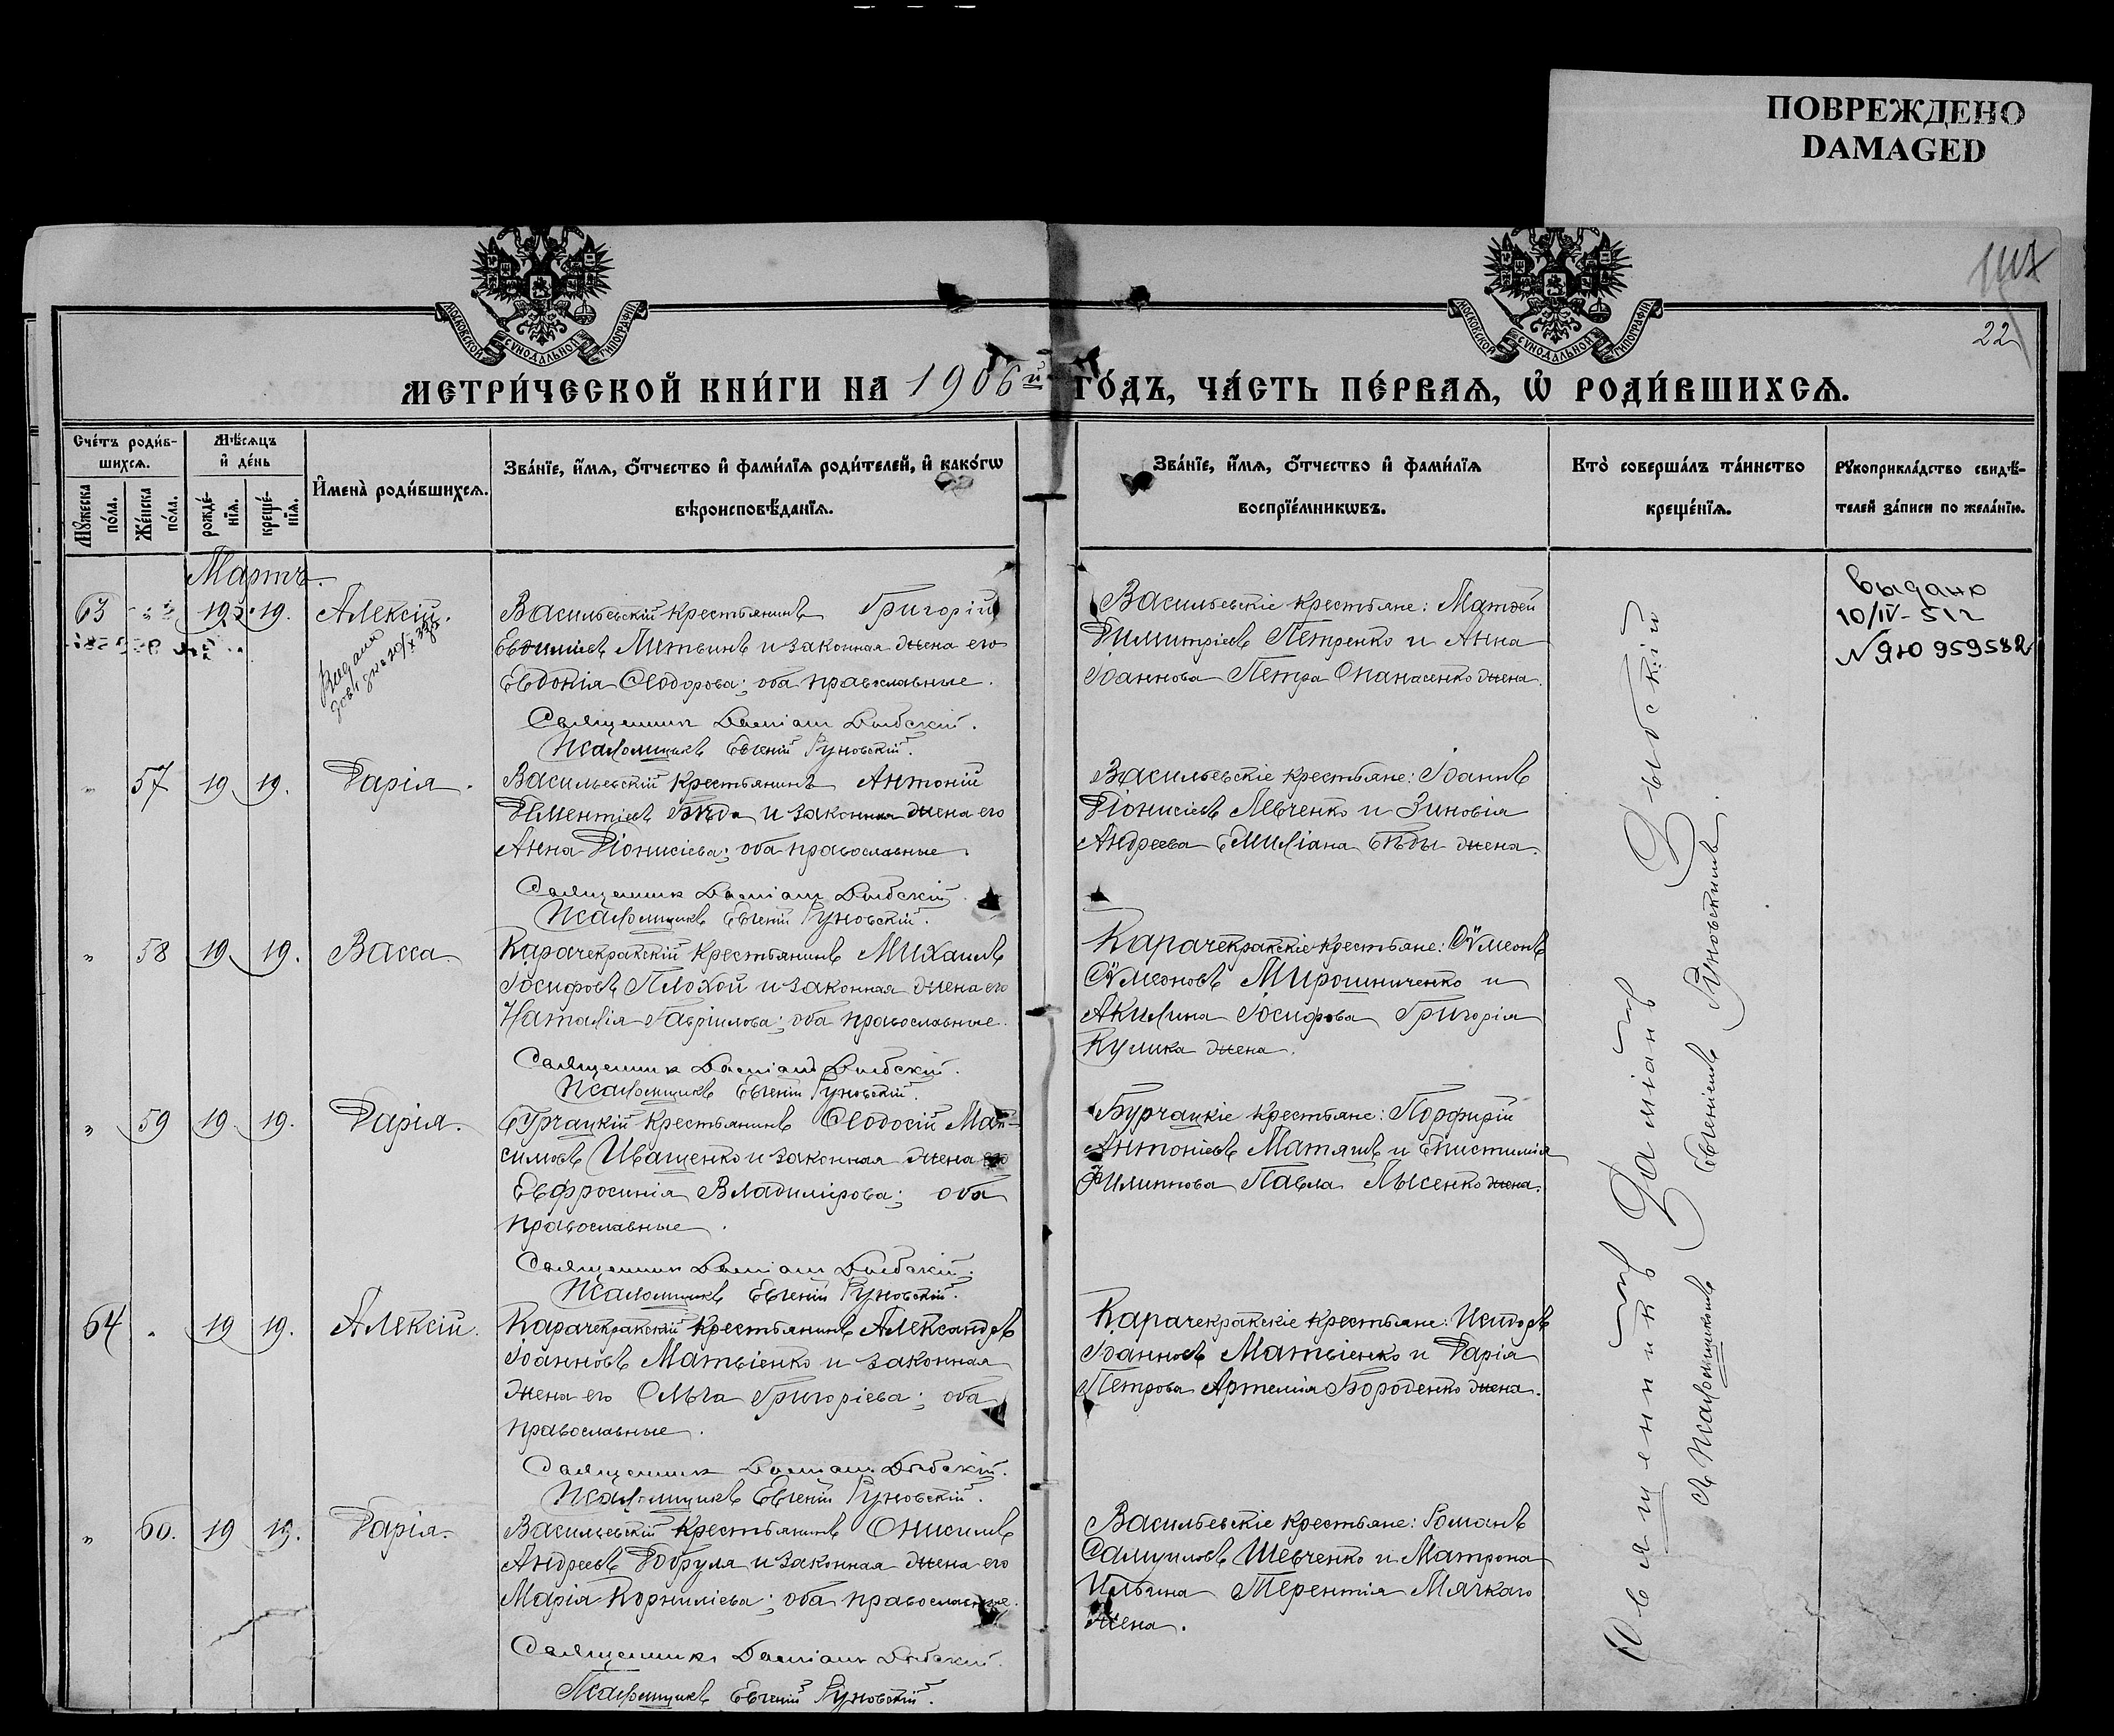 ПОВРЕЖДЕНО
DAMAGED
22
МОСКОВСКОЙ СѴНОДАЛЬНОЙ ТИПОГРАФІИ
МОСКОВСКОЙ СѴНОДАЛЬНОЙ ТИПОГРАФІИ
МЕТРИ́ЧЕСКОЙ КНИ́ГИ НА 1906й ГО́ДЪ, ЧА́СТЬ ПЕ́РВАѦ, Ѡ҆ РОДИ́ВШИХСѦ.
Сче́тъ роди́в-
шихсѧ.
Мѣ́сѧцъ
и҆ де́нь
Мꙋ́жеска по́ла.
Же́нска по́ла.
рожде́-нїѧ.
креще́-нїѧ.
И҆мена̀ роди́вшихсѧ.
Зва́нїе, и҆́мѧ, ѻ҆́тчество и҆ фами́лїѧ роди́телей, и҆ како́гѡ
вѣроисповѣ́данїѧ.
Зва́нїе, и҆́мѧ, ѻ҆́тчество и҆ фами́лїѧ
воспрїе́мникѡвъ.
Кто̀ соверша́лъ та́инство
креще́нїѧ.
Рꙋкоприкла́дство свидѣ́-
телей за́писи по жела́нїю.
Мартъ.
63 19 19. Алексій.
Выдано
Васильевскій крестьянинъ Григорій
Литвинъ и законная жена его
Евдокія Ѳеодорова; оба православные.
Священникъ Даміанъ Дыбскій.
Псаломщикъ Евгеній Руновскій.
Васильевскіе крестьяне: Матѳей
Димитріевъ Петренко и Анна
Іоаннова Петра Опанасенко жена.
выдано
10/IV-51г
№ЯЮ 959582
" 57 19 19. Дарія.
Васильевскій крестьянинъ Антоній
Климентіевъ Бѣда и законная жена его
Анна Діонисіева; оба православные.
Священникъ Даміанъ Дыбскій
Псаломщикъ Евгеній Руновскій.
Васильевскіе крестьяне: Іоаннъ
Діонисіевъ Левченко и Зиновія
Андреева Емиліана Бѣды жена.
" 58 19 19. Васса.
Карачекракскій крестьянинъ Михаилъ
Іосифовъ Плохой и законная жена его
Наталія Гавріилова; оба православные.
Священникъ Даміанъ Дыбскій.
Псаломщикъ Евгеній Руновскій.
Карачекракскіе крестьяне: Сѵмеонъ
Сѵмеоновъ Мирошниченко и
Акилина Іосифова Григорія
Кулика жена.
" 59 19 19. Дарія.
Бурчацкій крестьянинъ Ѳеодосій Мак-
симовъ Иващенко и законная жена его
Евфросинія Владимірова; оба
православные.
Священникъ Даміанъ Дыбскій.
Псаломщикъ Евгеній Руновскій.
Бурчацкіе крестьяне: Порфирій
Антоніевъ Матяшъ и Епистимія
Филиппова Павла Лысенко жена.
64 " 19 19. Алексій.
Карачекракскій крестьянинъ Александръ
Іоанновъ Матвіенко и законная
жена его Ольга Григоріева; оба
православные.
Священникъ Даміанъ Дыбскій.
Псаломщикъ Евгеній Руновскій.
Карачекракскіе крестьяне: Исидоръ
Іоанновъ Матвіенко и Дарія
Петрова Артемія Бороденко жена.
" 60. 19 19. Дарія.
Васильевскій крестьянинъ Онисимъ
Андреевъ Добруля и законная жена его
Марія Корниліева; оба православные.
Священникъ Даміанъ Дыбскій.
Псаломщикъ Евгеній Руновскій.
Васильевскіе крестьяне: Романъ
Самуиловъ Шевченко и Матрона
Ильина Терентія Мягкаго
жена.
Священникъ Даміанъ Дыбскій
съ Псаломщикомъ Евгеніемъ Руновскимъ.